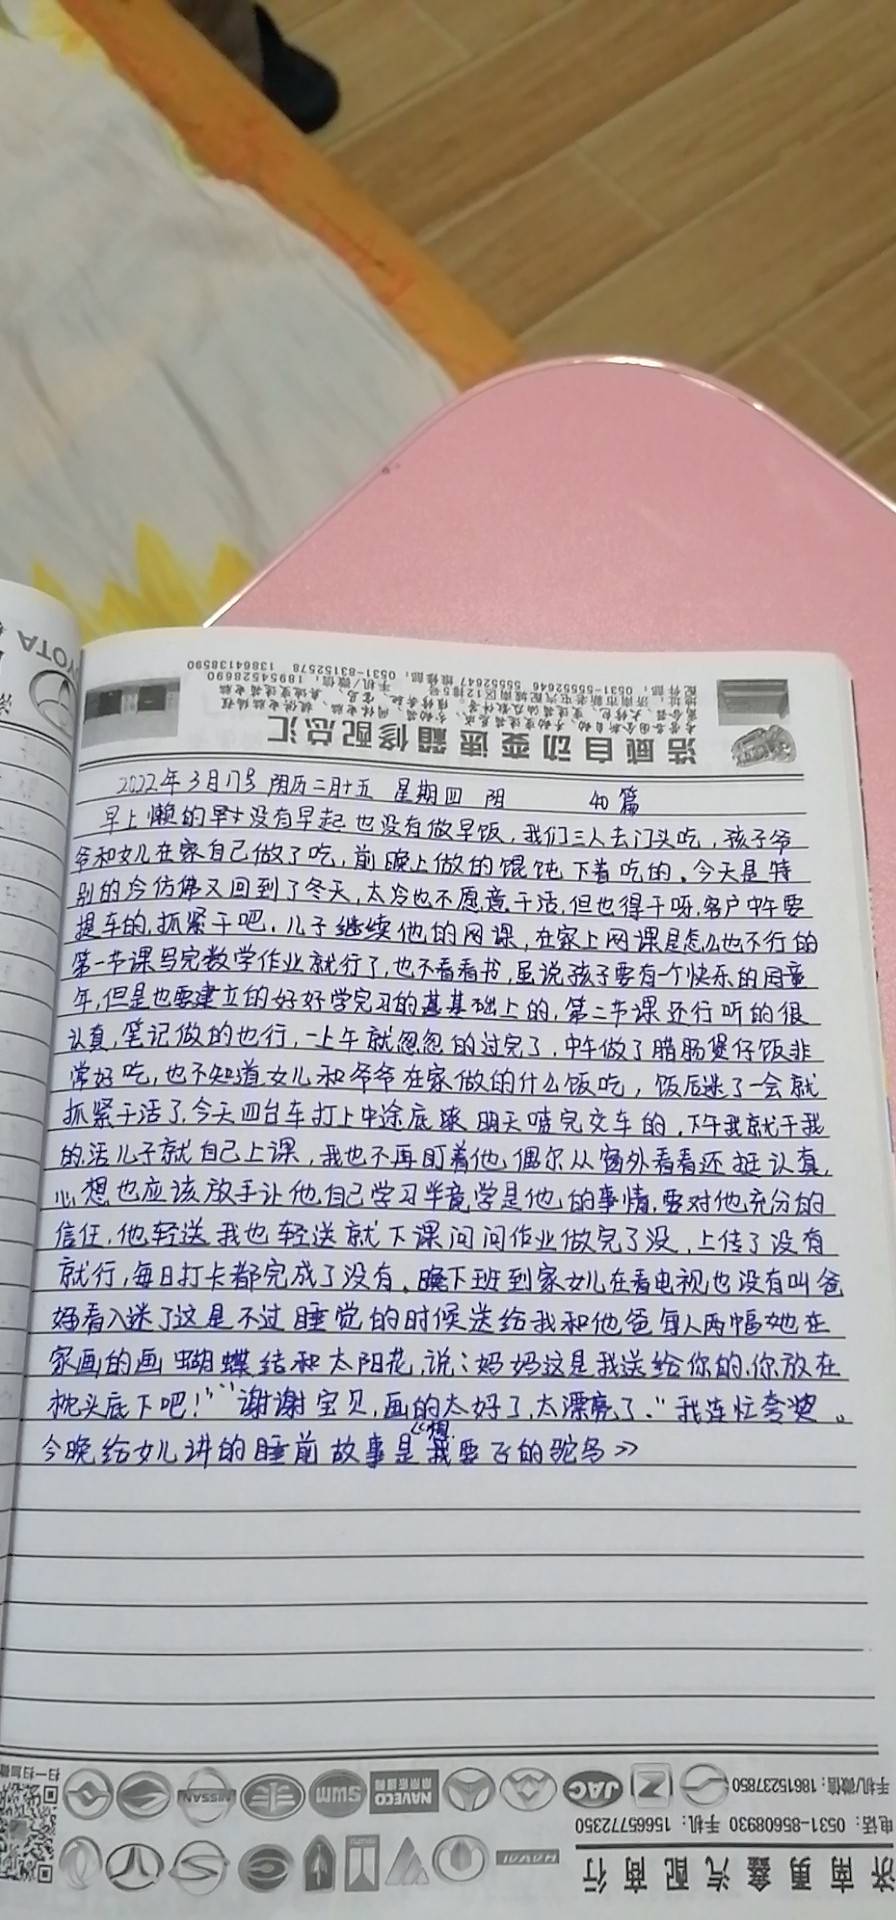 TOYOTA
配件部：0531-55552646 55552647 维修部：0531-83152578 手机/微信：18954528690 13864138590
浩威自动变速箱修配总汇
2022年3月17号 阴历二月十五 星期四 阴 40篇
早上懒的早才没有早起也没有做早饭，我们三人去门头吃，孩子爷
爷和女儿在家自己做了吃，前晚上做的馄饨下着吃的。今天是特
别的冷仿佛又回到了冬天，太冷也不愿意干活，但也得干呀，客户中午要
提车的，抓紧干吧。儿子继续他的网课，在家上网课是怎么也不行的
第一节课写完数学作业就行了，也不看看书，虽说孩子要有个快乐的周童
年，但是也要建立的好好学完习的基基础上的，第二节课还行听的很
认真，笔记做的也行，一上午就忽忽的过完了，中午做了腊肠煲仔饭非
常好吃，也不知道女儿和爷爷在家做的什么饭吃，饭后迷了一会就
抓紧干活了，今天四台车打上中途底漆明天喷完交车的，下午我就干我
的活儿子就自己上课，我也不再盯着他，偶尔从窗外看看还挺认真，
心想也应该放手让他自己学习毕竟学是他的事情，要对他充分的
信任，他轻送我也轻送就下课问问作业做完了没，上传了没有
就行，每日打卡都完成了没有。晚下班到家女儿在看电视也没有叫爸
妈看入迷了这是不过睡觉的时候送给我和他爸每人两幅她在
家画的画蝴蝶结和太阳花，说：妈妈这是我送给你的，你放在
枕头底下吧！”“谢谢宝贝，画的太好了，太漂亮了。”我连忙夸奖。
今晚给女儿讲的睡前故事是《我想要飞的鸵鸟》
扫一扫加微
NISSAN SWM NAVECO JAC
手机/微信：18615237850
电话：0531-85608930 手机：15665772350
HAVAL
济南勇鑫汽配商行